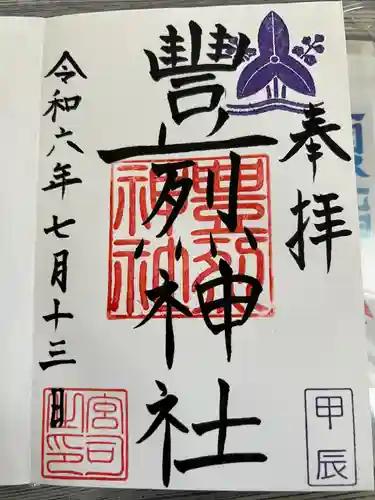 奉拝
豊烈神社
令和六年七月十三日
甲辰
豊烈神社
宮司之印